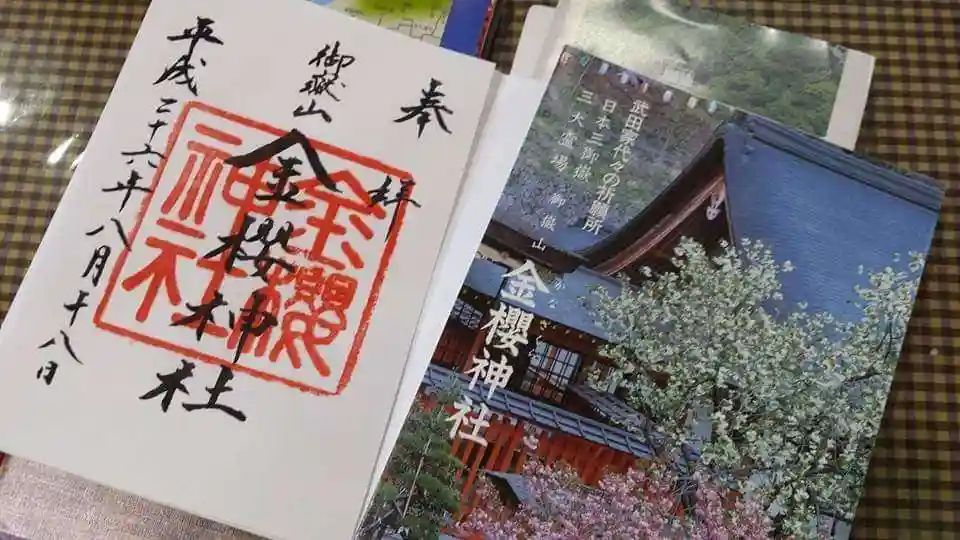 奉拝
御嶽山
金櫻神社
平成二十六年八月十八日
金櫻神社
武田家代々の祈願所
日本三御嶽
三大霊場 御嶽山
金櫻神社
かなざくら